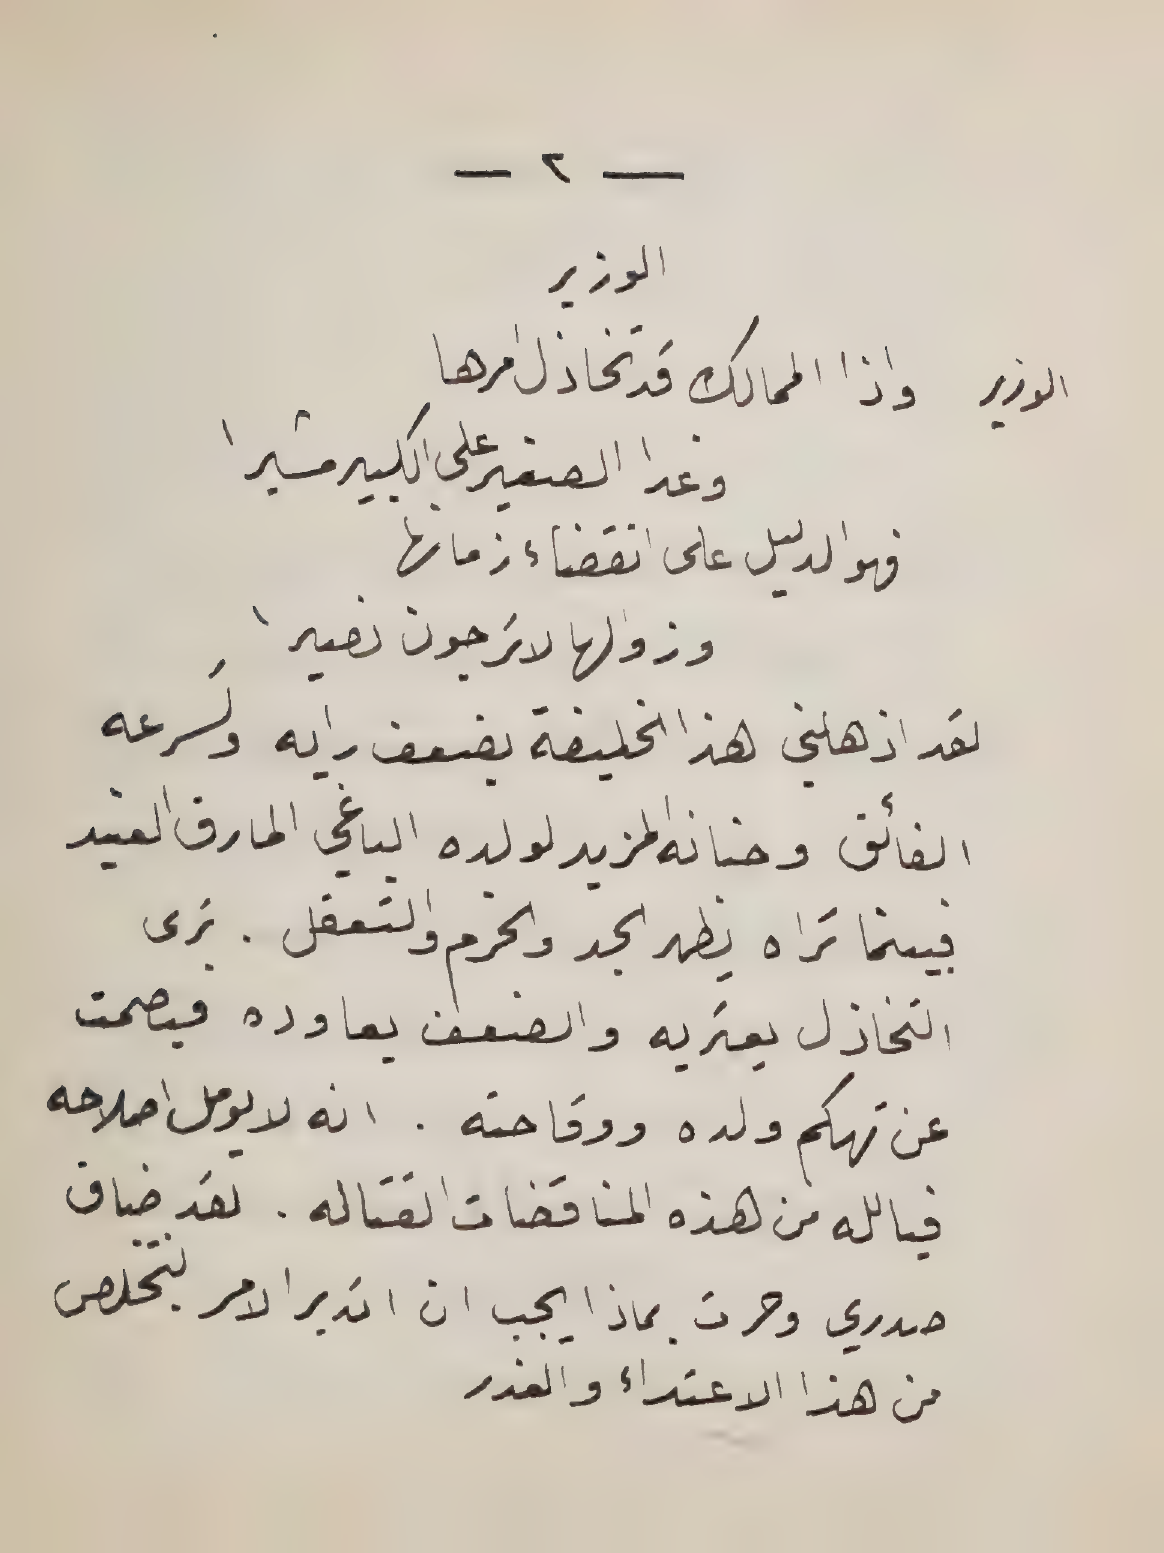 — ٢ —
الوزير
الوزير واذا الممالك قد تخاذل امرها
وغدا الصغير على الكبير مشيرا
فهو الدليل على انقضاء زمانها
وزوالها لا ترجون نصيرا
لقد اذهلني هذا الخليفة بضعف رايه وتسرعه
الفائق وحنانه المزيد لولده الباغي المارق العنيد
فبينما تراه يظهر الجد والحزم والتعقل . ترى
التخاذل يعتريه والضعف يعاوده فيصمت
عن تهكم ولده ووقاحته . انه لا يومل اصلاحه
فيالله من هذه المناقضات القتاله . لقد ضاق
صدري وحرت بماذا يجب ان اتدبر الامر لنتخلص
من هذا الاعتداء والغدر